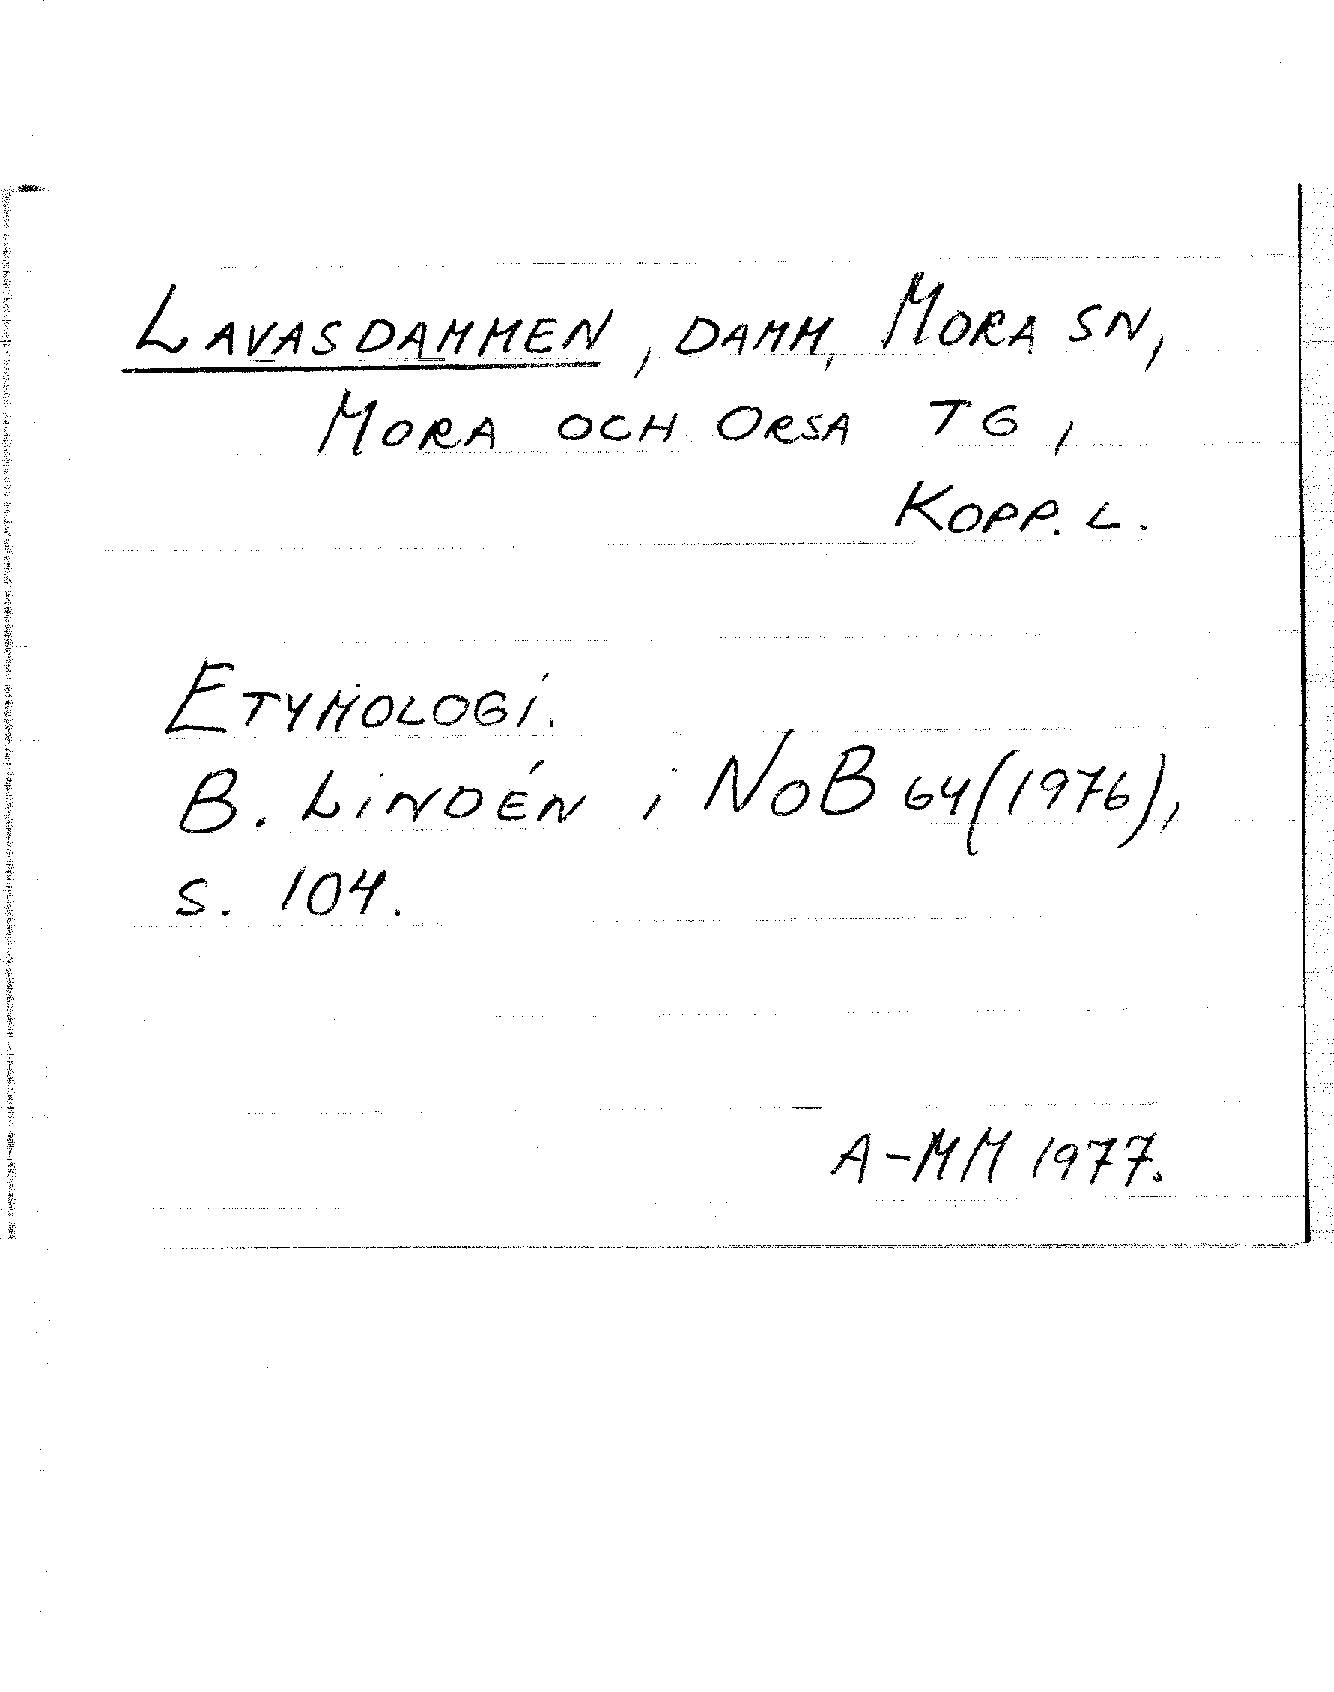 LAVASDAMMEN, DAMM, MORA SN,
MORA OCH ORSA TG,
KOPP. L.
ETYMOLOGI.
B. LINDÉN i NoB 64 (1976),
S. 104.
A-MM 1977.